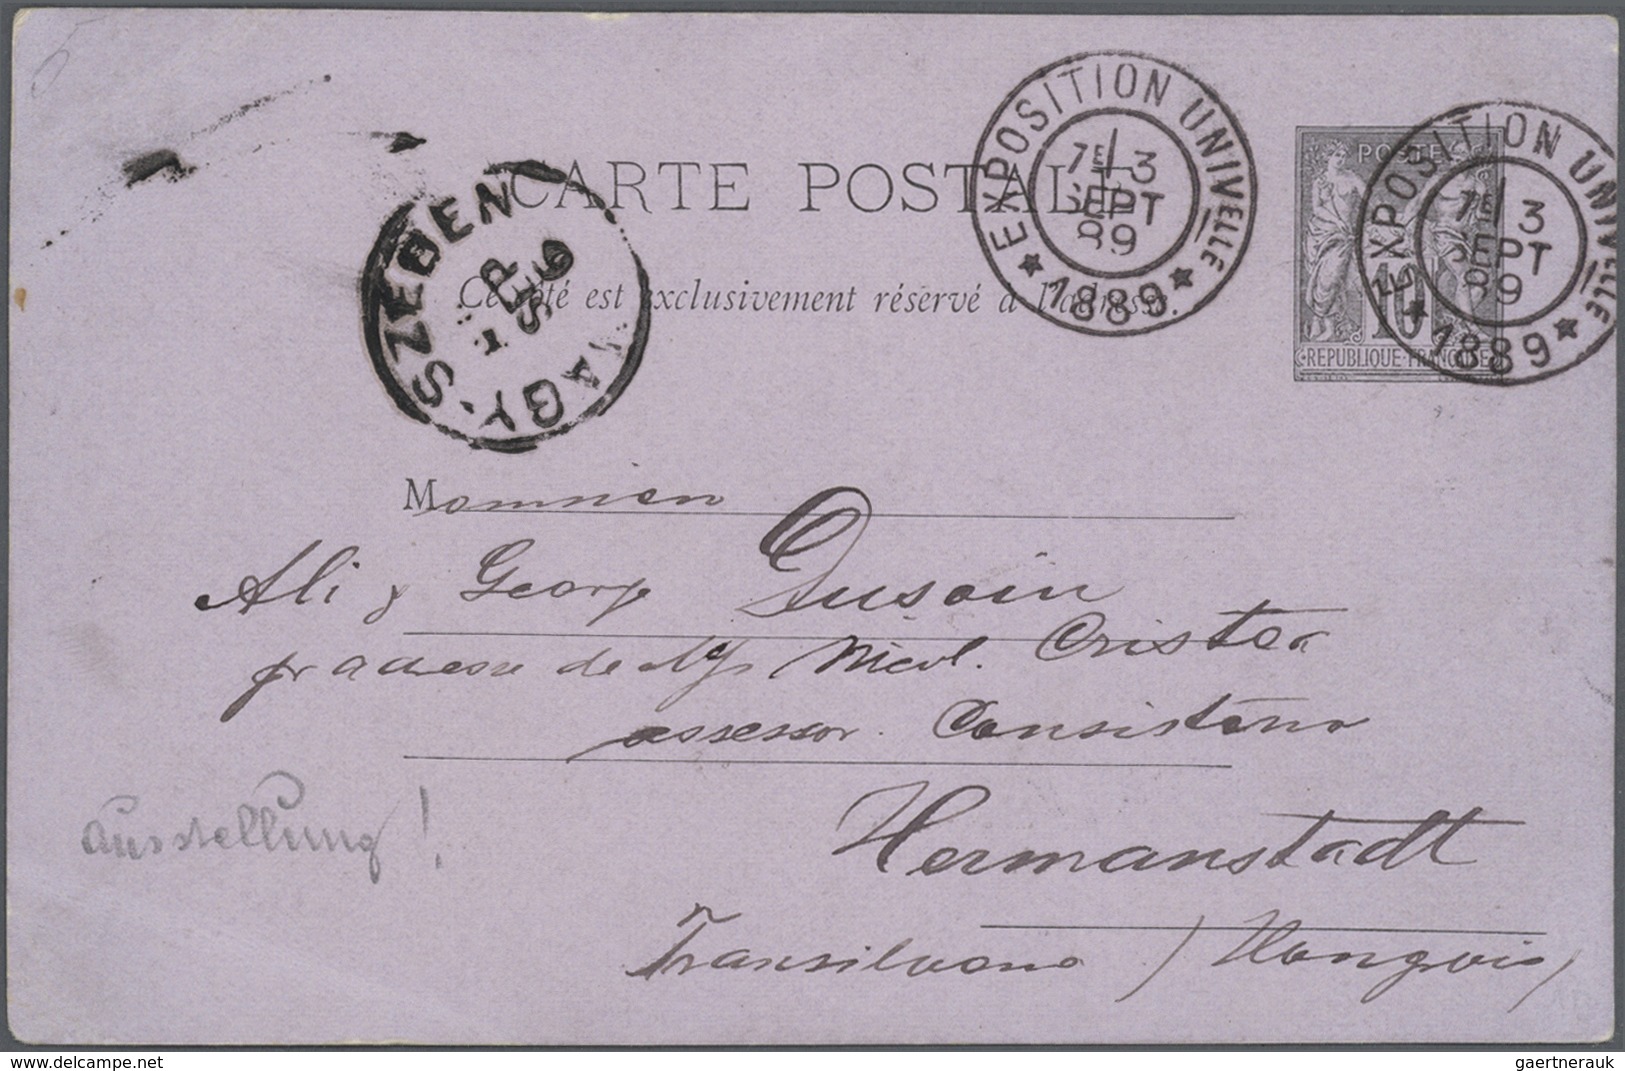 CARTE POSTALE
Ce côté est exclusivement réservé à l'adresse.
EXPOSITION UNIVELLE
7E 3
SEPT
89
★ 1889 ★
POSTES
10
REPUBLIQUE FRANÇAISE
EXPOSITION UNIVELLE
7E 3
SEPT
89
★ 1889 ★
NAGY-SZEBEN
SEP
M
Ali & George Dusoin
adresse de Nicol. Cristea
assessor
Hermanstadt
Transilvana / Hongrie /
ausstellung!
gaertnerauk